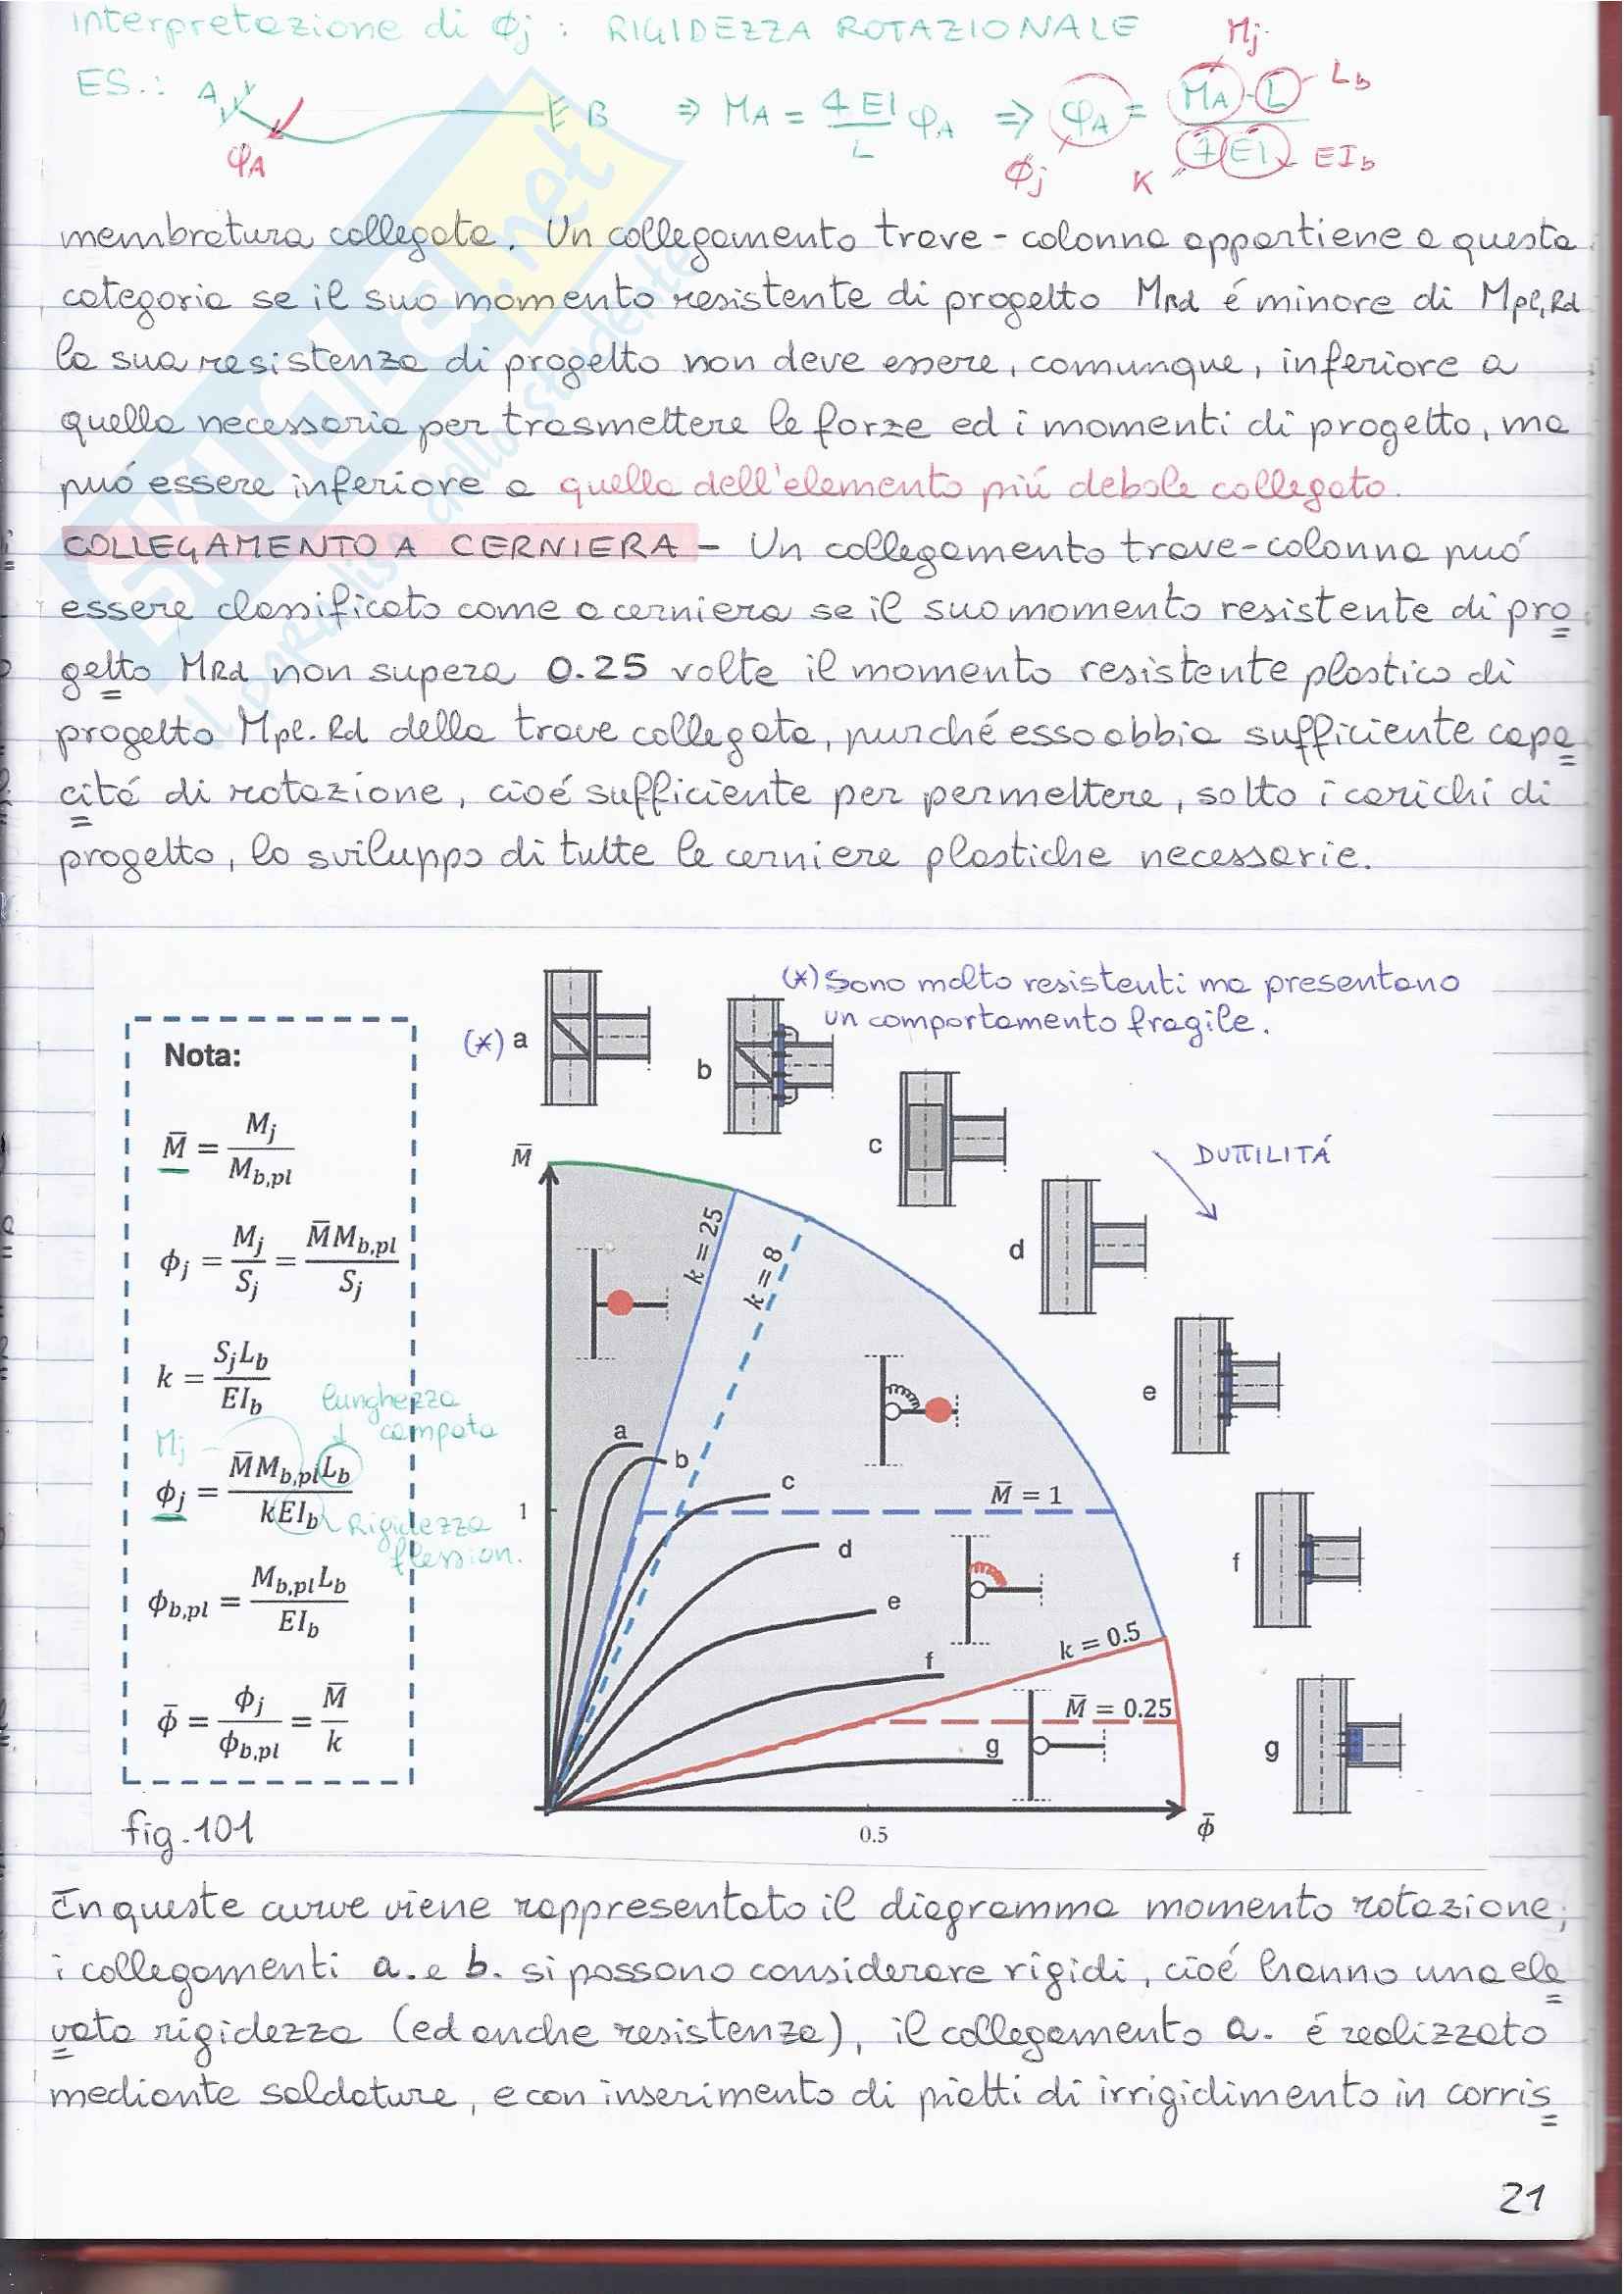 Interpretazione di ϕj : RIGIDEZZA ROTAZIONALE
ES.: A B ⇒ MA = 4EI/L φA ⇒ φA = MA·L / 4EI
φA ϕj K Mj Lb EIb
membratura collegata. Un collegamento trave-colonna appartiene a questa
categoria se il suo momento resistente di progetto MRd é minore di Mpl,Rd
la sua resistenza di progetto non deve essere, comunque, inferiore a
quella necessaria per trasmettere le forze ed i momenti di progetto, ma
può essere inferiore a quella dell'elemento piú debole collegato.
COLLEGAMENTO A CERNIERA - Un collegamento trave-colonna puó
essere classificato come a cerniera se il suo momento resistente di pro
getto MRd non supera 0.25 volte il momento resistente plastico di
progetto Mpl.Rd della trave collegata, purché esso abbia sufficiente capa
citá di rotazione, cioé sufficiente per permettere, sotto i carichi di
progetto, lo sviluppo di tutte le cerniere plastiche necessarie.
SKUOLA.net
il paradiso dello studente
(*) Sono molto resistenti ma presentano
un comportamento fragile.
(*) a
b
c
d
e
f
g
DUTTILITÁ
Nota:
M̄ = Mj / Mb,pl
ϕj = Mj / Sj = M̄Mb,pl / Sj
k = SjLb / EIb
lunghezza
campata
Mj
ϕj = M̄Mb,plLb / kEIb
Rigidezza
flession.
ϕb,pl = Mb,plLb / EIb
ϕ̄ = ϕj / ϕb,pl = M̄ / k
fig.101
M̄
k = 25
k = 8
a
b
c
1
M̄ = 1
d
e
f
k = 0.5
M̄ = 0.25
g
0.5
ϕ̄
In queste curve viene rappresentato il diagramma momento rotazione;
i collegamenti a. e b. si possono considerare rigidi, cioé hanno una ele
vata rigidezza (ed anche resistenza), il collegamento a. é realizzato
mediante saldature, e con inserimento di piatti di irrigidimento in corris
21